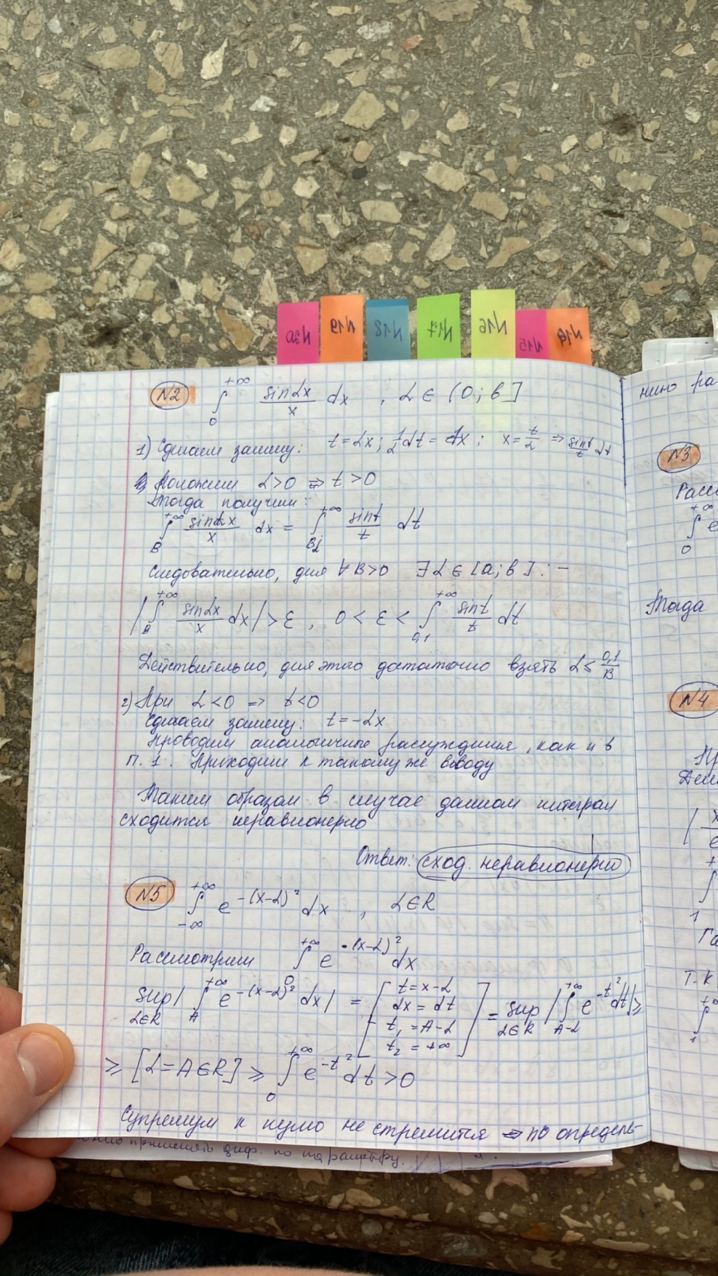 N20 N19 N18 N17 N16 N15 N14
N2 ∫₀^{+∞} sin αx / x dx , α ∈ [0; b]
1) Сделаем замену: t = αx ; 1/α dt = dx ; x = t/α ⇒ sin t / t dt
Положим α>0 ⇒ t>0
Тогда получим:
∫_B^{+∞} sin αx / x dx = ∫_{Bα}^{+∞} sin t / t dt
Следовательно, для ∀ B>0 ∃ α ∈ [a; b] : –
|∫^{+∞} sin αx / x dx| > ε , 0 < ε < ∫_{0,1}^{+∞} sin t / t dt
Действительно, для этого достаточно взять α ≤ 0,1/B
2) При α<0 ⇒ t<0
Сделаем замену: t = -αx
Проводим аналогичные рассуждения, как и в
п. 1. Приходим к такому же выводу
Таким образом в случае данном интеграл
сходится неравномерно
Ответ: сход. неравномерно
N5 ∫_{-∞}^{+∞} e^{-(x-α)²} dx , α∈R
Рассмотрим ∫₀^{+∞} e^{-(x-α)²} dx
sup_{α∈R} |∫_A^{+∞} e^{-(x-α)²} dx| = [t = x-α dx = dt t₁ = A-α t₂ = +∞] = sup_{α∈R} |∫_{A-α}^{+∞} e^{-t²} dt| ≥
≥ [α = A∈R] ≥ ∫₀^{+∞} e^{-t²} dt > 0
Супремум к нулю не стремится ⇒ по определе-
применять диф. по параметру.
нию ра
N3
Расс
∫₀^{+∞} e
Тогда
N4
Пр
| x
e
+
∫
1
Т.К
+∞
∫
1